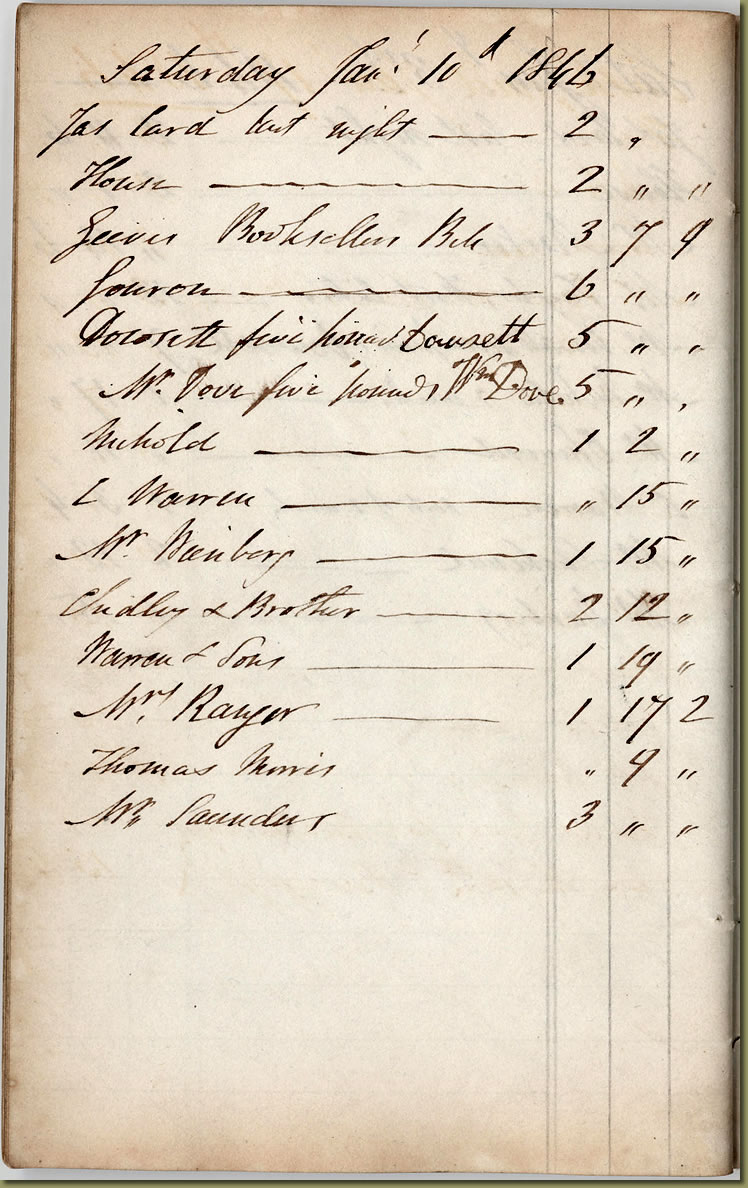 Saturday Jany 10d 1846
Jas Card last night — 2 "
House — 2 " "
Booksellers Bill 3 7 9
6 " "
Dowsett five pound Dowsett 5 " "
Mr. Dove five pounds Wm Dove 5 " "
Nichold — 1 2 "
L Warren — " 15 "
Mr Weinberg — 1 15 "
Chidley & Brother — 2 12 "
Warren & Sons — 1 19 "
Mrs. Ranger — 1 17 2
Thomas Morris " 9 "
Mr. Saunders 3 " "